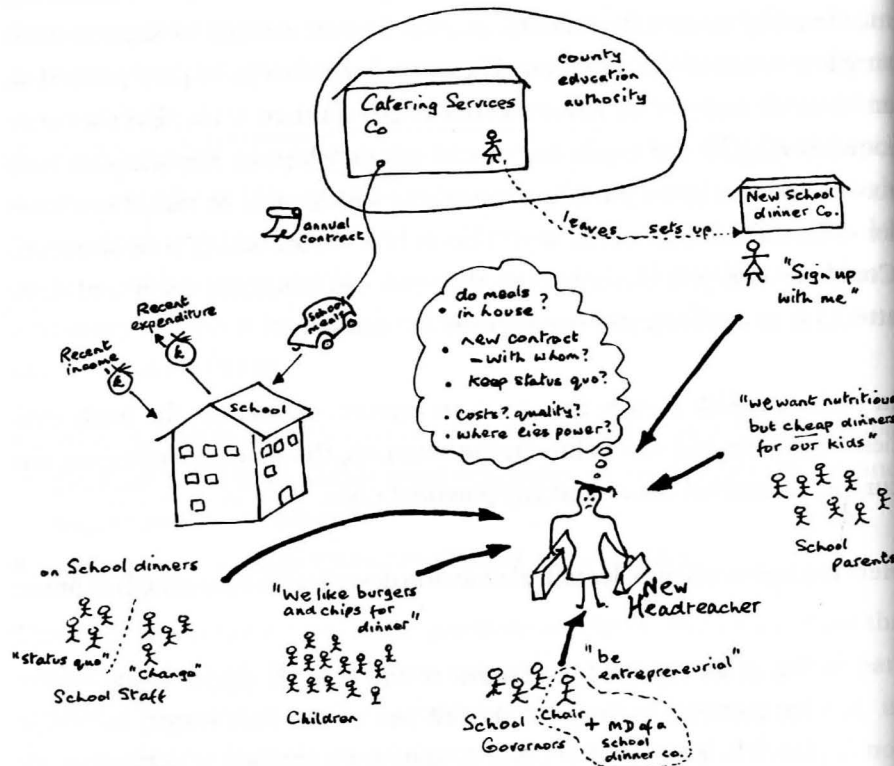 county
education
authority
Catering Services
Co
annual
contract
leaves sets up
New School
dinner Co.
"Sign up
with me"
Recent
expenditure
Recent
income
£
£
School
meals
School
do meals
in house?
new contract
- with whom?
keep status quo?
costs? quality?
where lies power?
"we want nutritious
but cheap dinners
for our kids"
School
parents
on School dinners
"status quo"
"change"
School Staff
"We like burgers
and chips for
dinner"
Children
New
Headteacher
"be
entrepreneurial"
School
Governors
Chair
+ MD of a
school
dinner co.